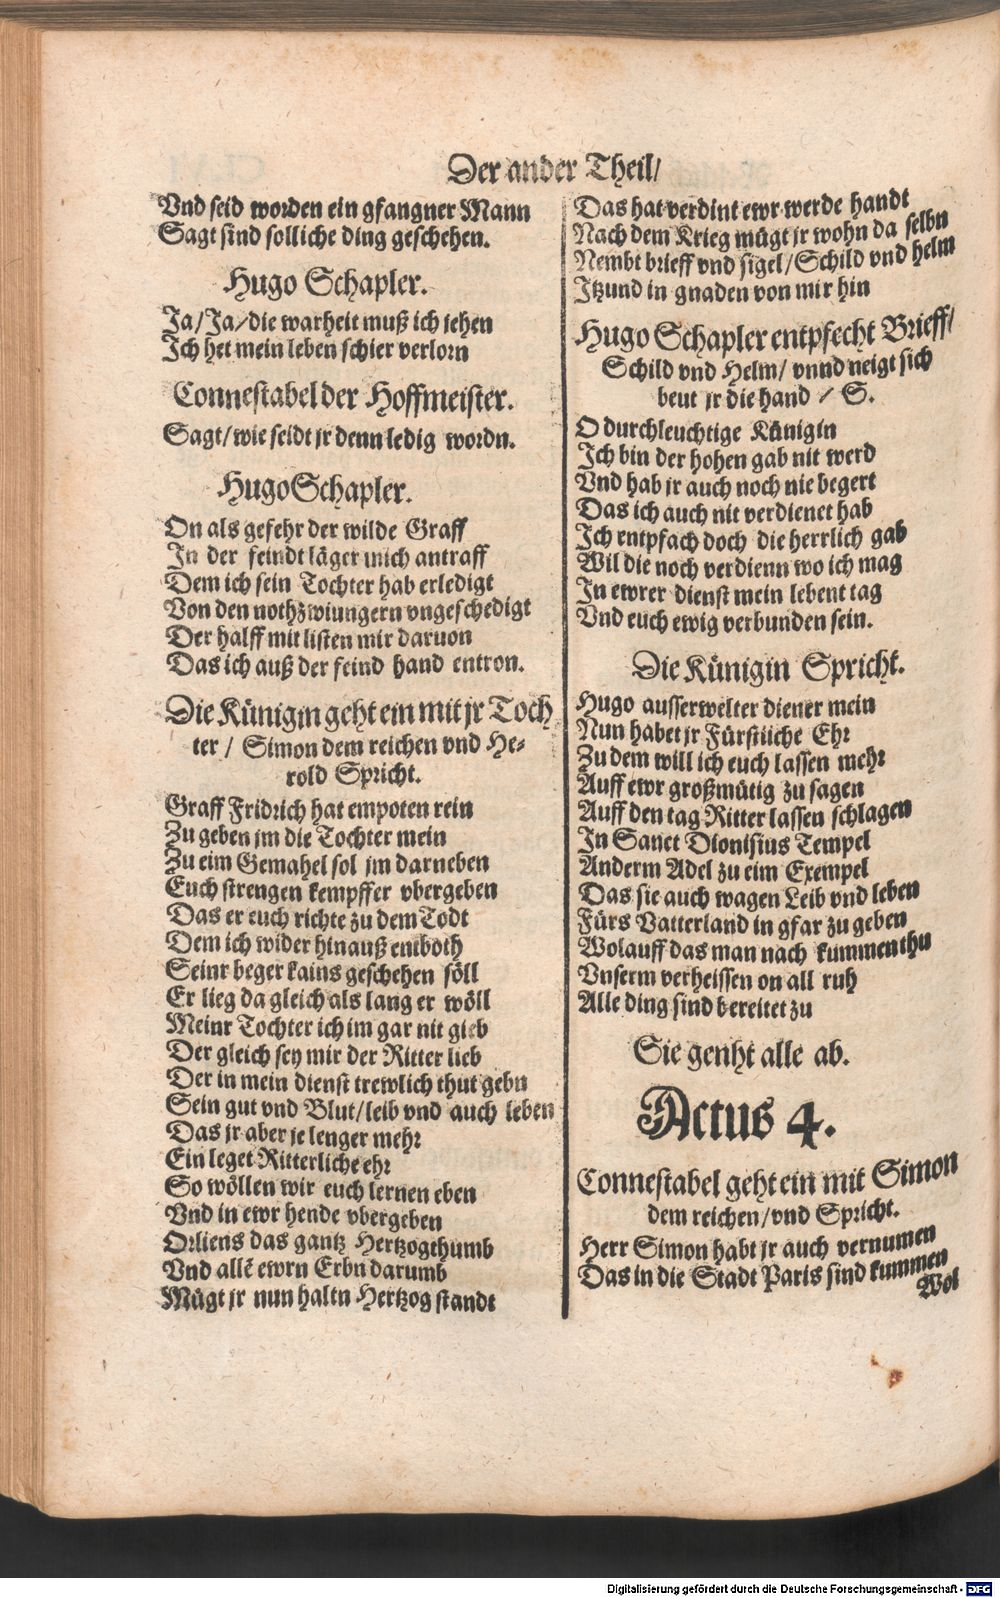 Der ander Theil/
Vnd seid worden ein gfangner Mann
Sagt sind solliche ding geschehen.
Hugo Schapler.
Ja/Ja/die warheit muß ich jehen
Ich het mein leben schier verlorn
Connestabel der Hoffmeister.
Sagt/wie seidt jr denn ledig wordn.
Hugo Schapler.
On als gefehr der wilde Graff
In der feindt läger mich antraff
Dem ich sein Tochter hab erledigt
Von den nothzwiungern vngeschedigt
Der halff mit listen mir daruon
Das ich auß der feind hand entron.
Die Künigin geht ein mit jr Toch
ter / Simon dem reichen vnd He-
rold Spricht.
Graff Fridrich hat empoten rein
Zu geben jm die Tochter mein
Zu eim Gemahel sol jm darneben
Euch strengen kempffer vbergeben
Das er euch richte zu dem Todt
Dem ich wider hinauß emboth
Seinr beger kains geschehen söll
Er lieg da gleich als lang er wöll
Meinr Tochter ich im gar nit gieb
Der gleich sey mir der Ritter lieb
Der in mein dienst trewlich thut gebn
Sein gut vnd Blut/leib vnd auch leben
Das jr aber je lenger mehr
Ein leget Ritterliche ehr
So wöllen wir euch lernen eben
Vnd in ewr hende vbergeben
Orliens das gantz Hertzogthumb
Vnd allẽ ewrn Erbn darumb
Mügt jr nun haltn Hertzog standt
Das hat verdint ewr werde handt
Nach dem Krieg mügt jr wohn da selbn
Nembt brieff vnd sigel/Schild vnd helm
Itzund in gnaden von mir hin
Hugo Schapler entpfecht Brieff/
Schild vnd Helm/ vnnd neigt sich
beut jr die hand / S.
O durchleuchtige Künigin
Ich bin der hohen gab nit werd
Vnd hab jr auch noch nie begert
Das ich auch nit verdienet hab
Ich entpfach doch die herrlich gab
Wil die noch verdienn wo ich mag
In ewrer dienst mein lebent tag
Vnd euch ewig verbunden sein.
Die Künigin Spricht.
Hugo ausserwelter diener mein
Nun habet jr Fürstliche Ehr
Zu dem will ich euch lassen mehr
Auff ewr großmütig zu sagen
Auff den tag Ritter lassen schlagen
In Sanct Dionisius Tempel
Anderm Adel zu eim Exempel
Das sie auch wagen Leib vnd leben
Fürs Vatterland in gfar zu geben
Wolauff das man nach kummen thu
Vnserm verheissen on all ruh
Alle ding sind bereitet zu
Sie genht alle ab.
Actus 4.
Connestabel geht ein mit Simon
dem reichen/vnd Spricht.
Herr Simon habt jr auch vernumen
Das in die Stadt Paris sind kummen
Wol
Digitalisierung gefördert durch die Deutsche Forschungsgemeinschaft - DFG